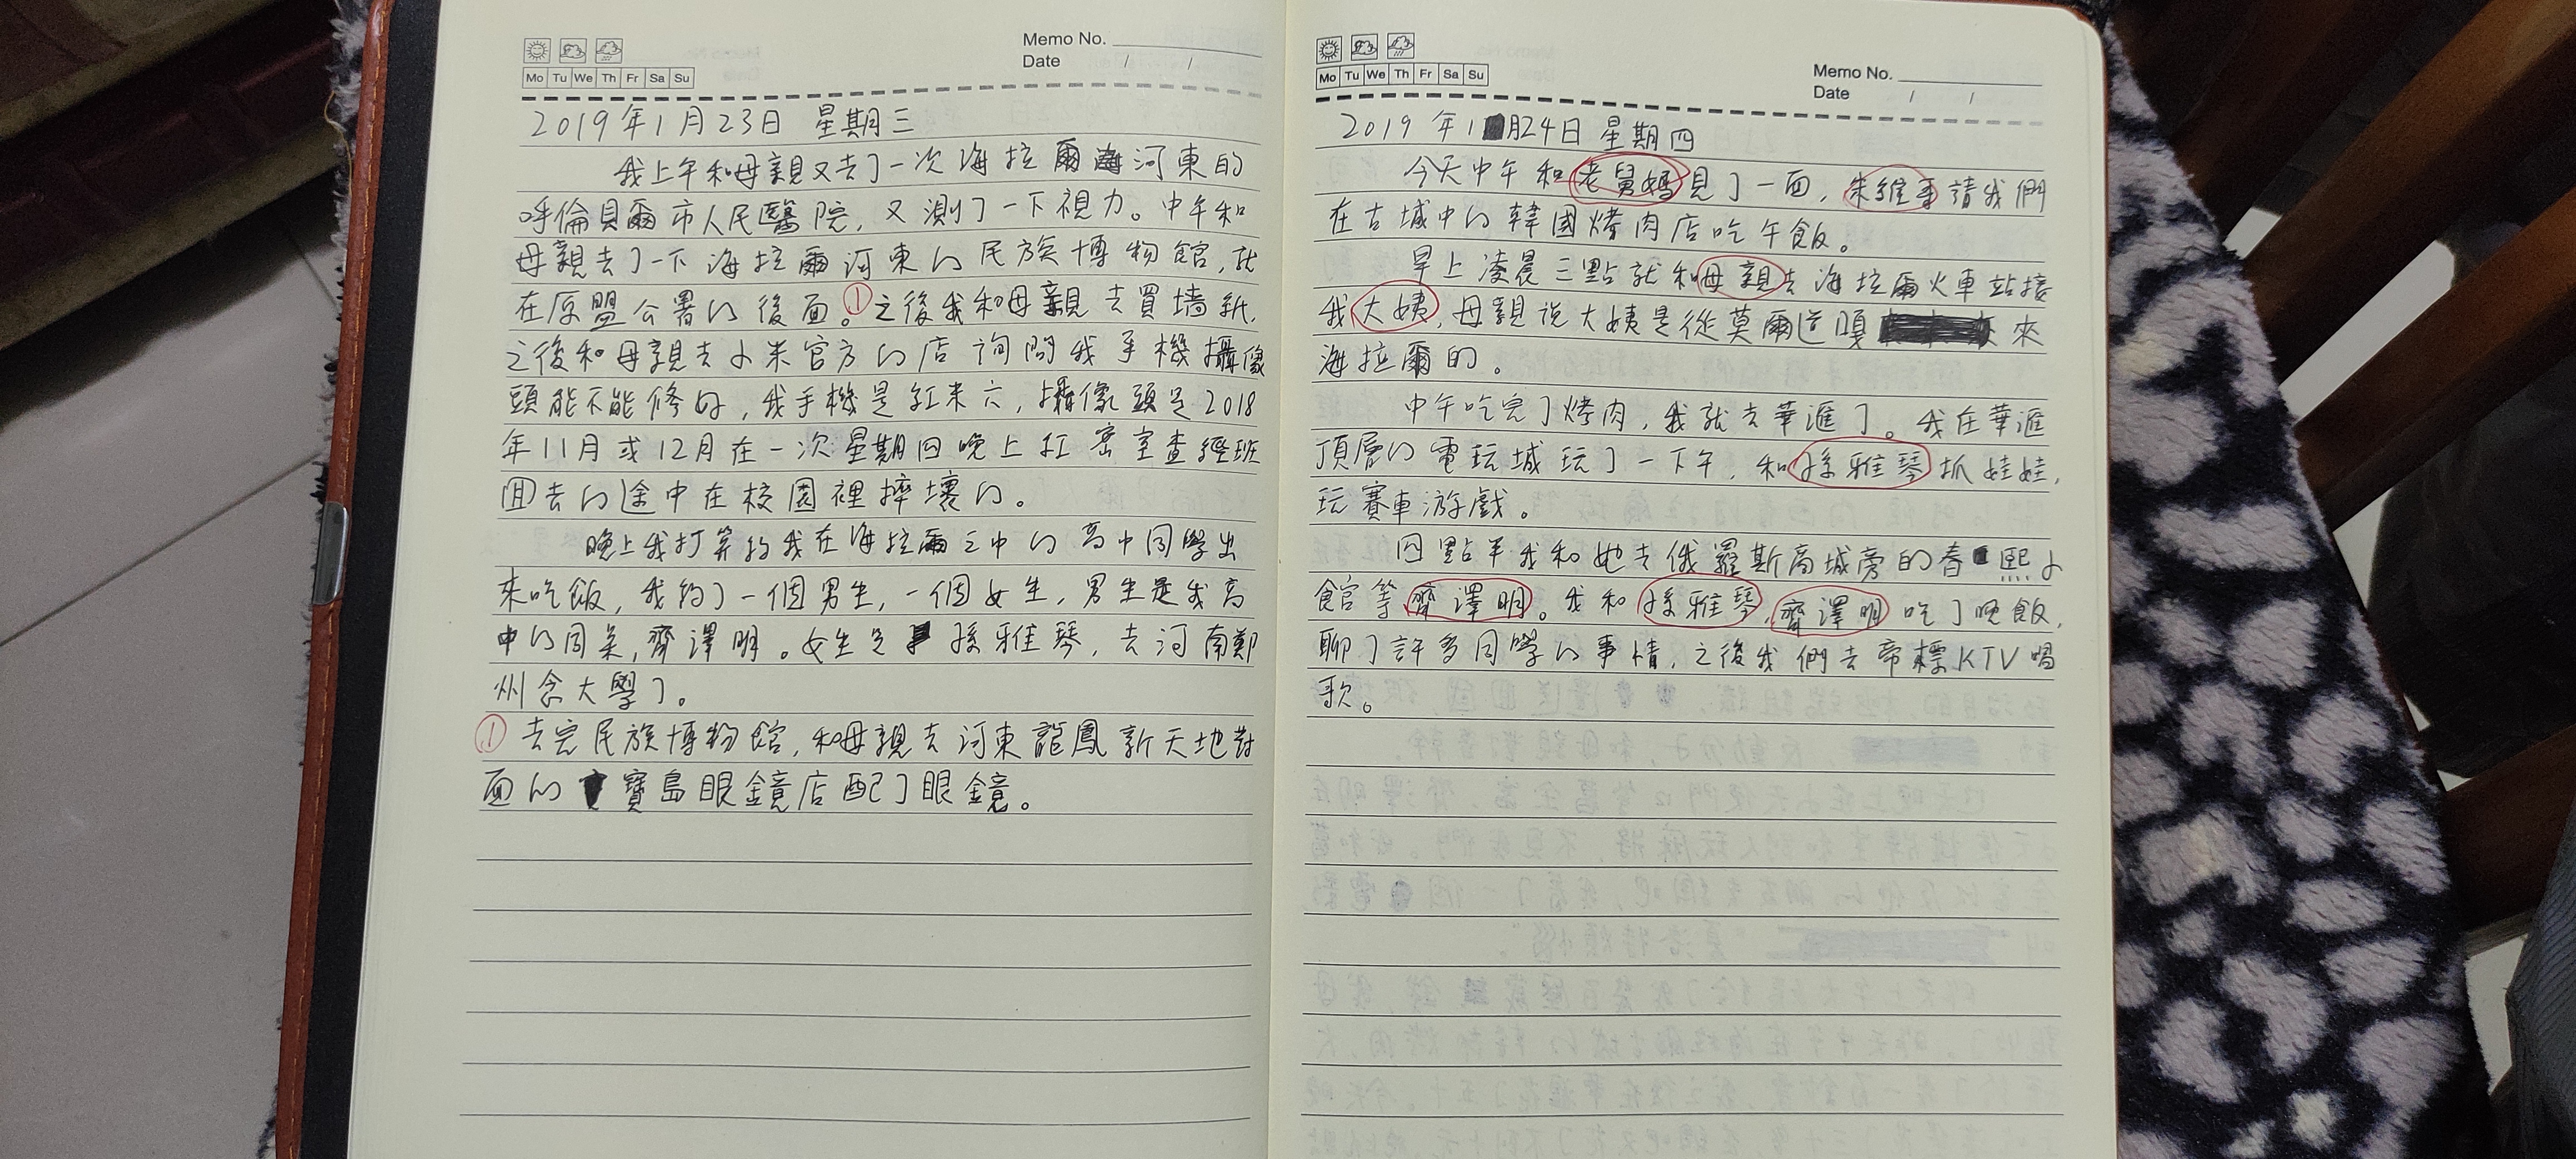 Memo No.
Date / /
Mo Tu We Th Fr Sa Su
2019年1月23日 星期三
我上午和母親又去了一次海拉爾河東的
呼倫貝爾市人民醫院，又測了一下視力。中午和
母親去了一下海拉爾河東的民族博物館，就
在原盟公署的後面。①之後我和母親去買墻紙，
之後和母親去小米官方的店詢問我手機攝像
頭能不能修好，我手機是紅米六，攝像頭是2018
年11月或12月在一次星期四晚上扛密室查經班
回去的途中在校園裡摔壞的。
晚上我打算約我在海拉爾三中的高中同學出
來吃飯，我約了一個男生，一個女生，男生是我高
中的同桌，齊澤明。女生是孫雅琴，去河南鄭
州念大學了。
① 去完民族博物館，和母親去河東龍鳳新天地對
面的寶島眼鏡店配了眼鏡。
Memo No.
Date / /
Mo Tu We Th Fr Sa Su
2019年1月24日 星期四
今天中午和老舅媽見了一面，朱維請我們
在古城中的韓國烤肉店吃午飯。
早上凌晨三點就和母親去海拉爾火車站接
我大姨，母親說大姨是從莫爾道嘎來
海拉爾的。
中午吃完了烤肉，我就去華滙了。我在華滙
頂層的電玩城玩了一下午，和孫雅琴抓娃娃，
玩賽車游戲。
四點半我和她去俄羅斯商城旁的春熙小
館等齊澤明。我和孫雅琴，齊澤明吃了晚飯，
聊了許多同學的事情，之後我們去帝標KTV唱
歌。